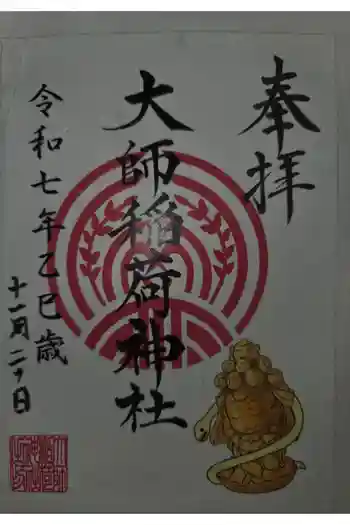 奉拝
大師稲荷神社
令和七年乙巳歳
十一月二十日